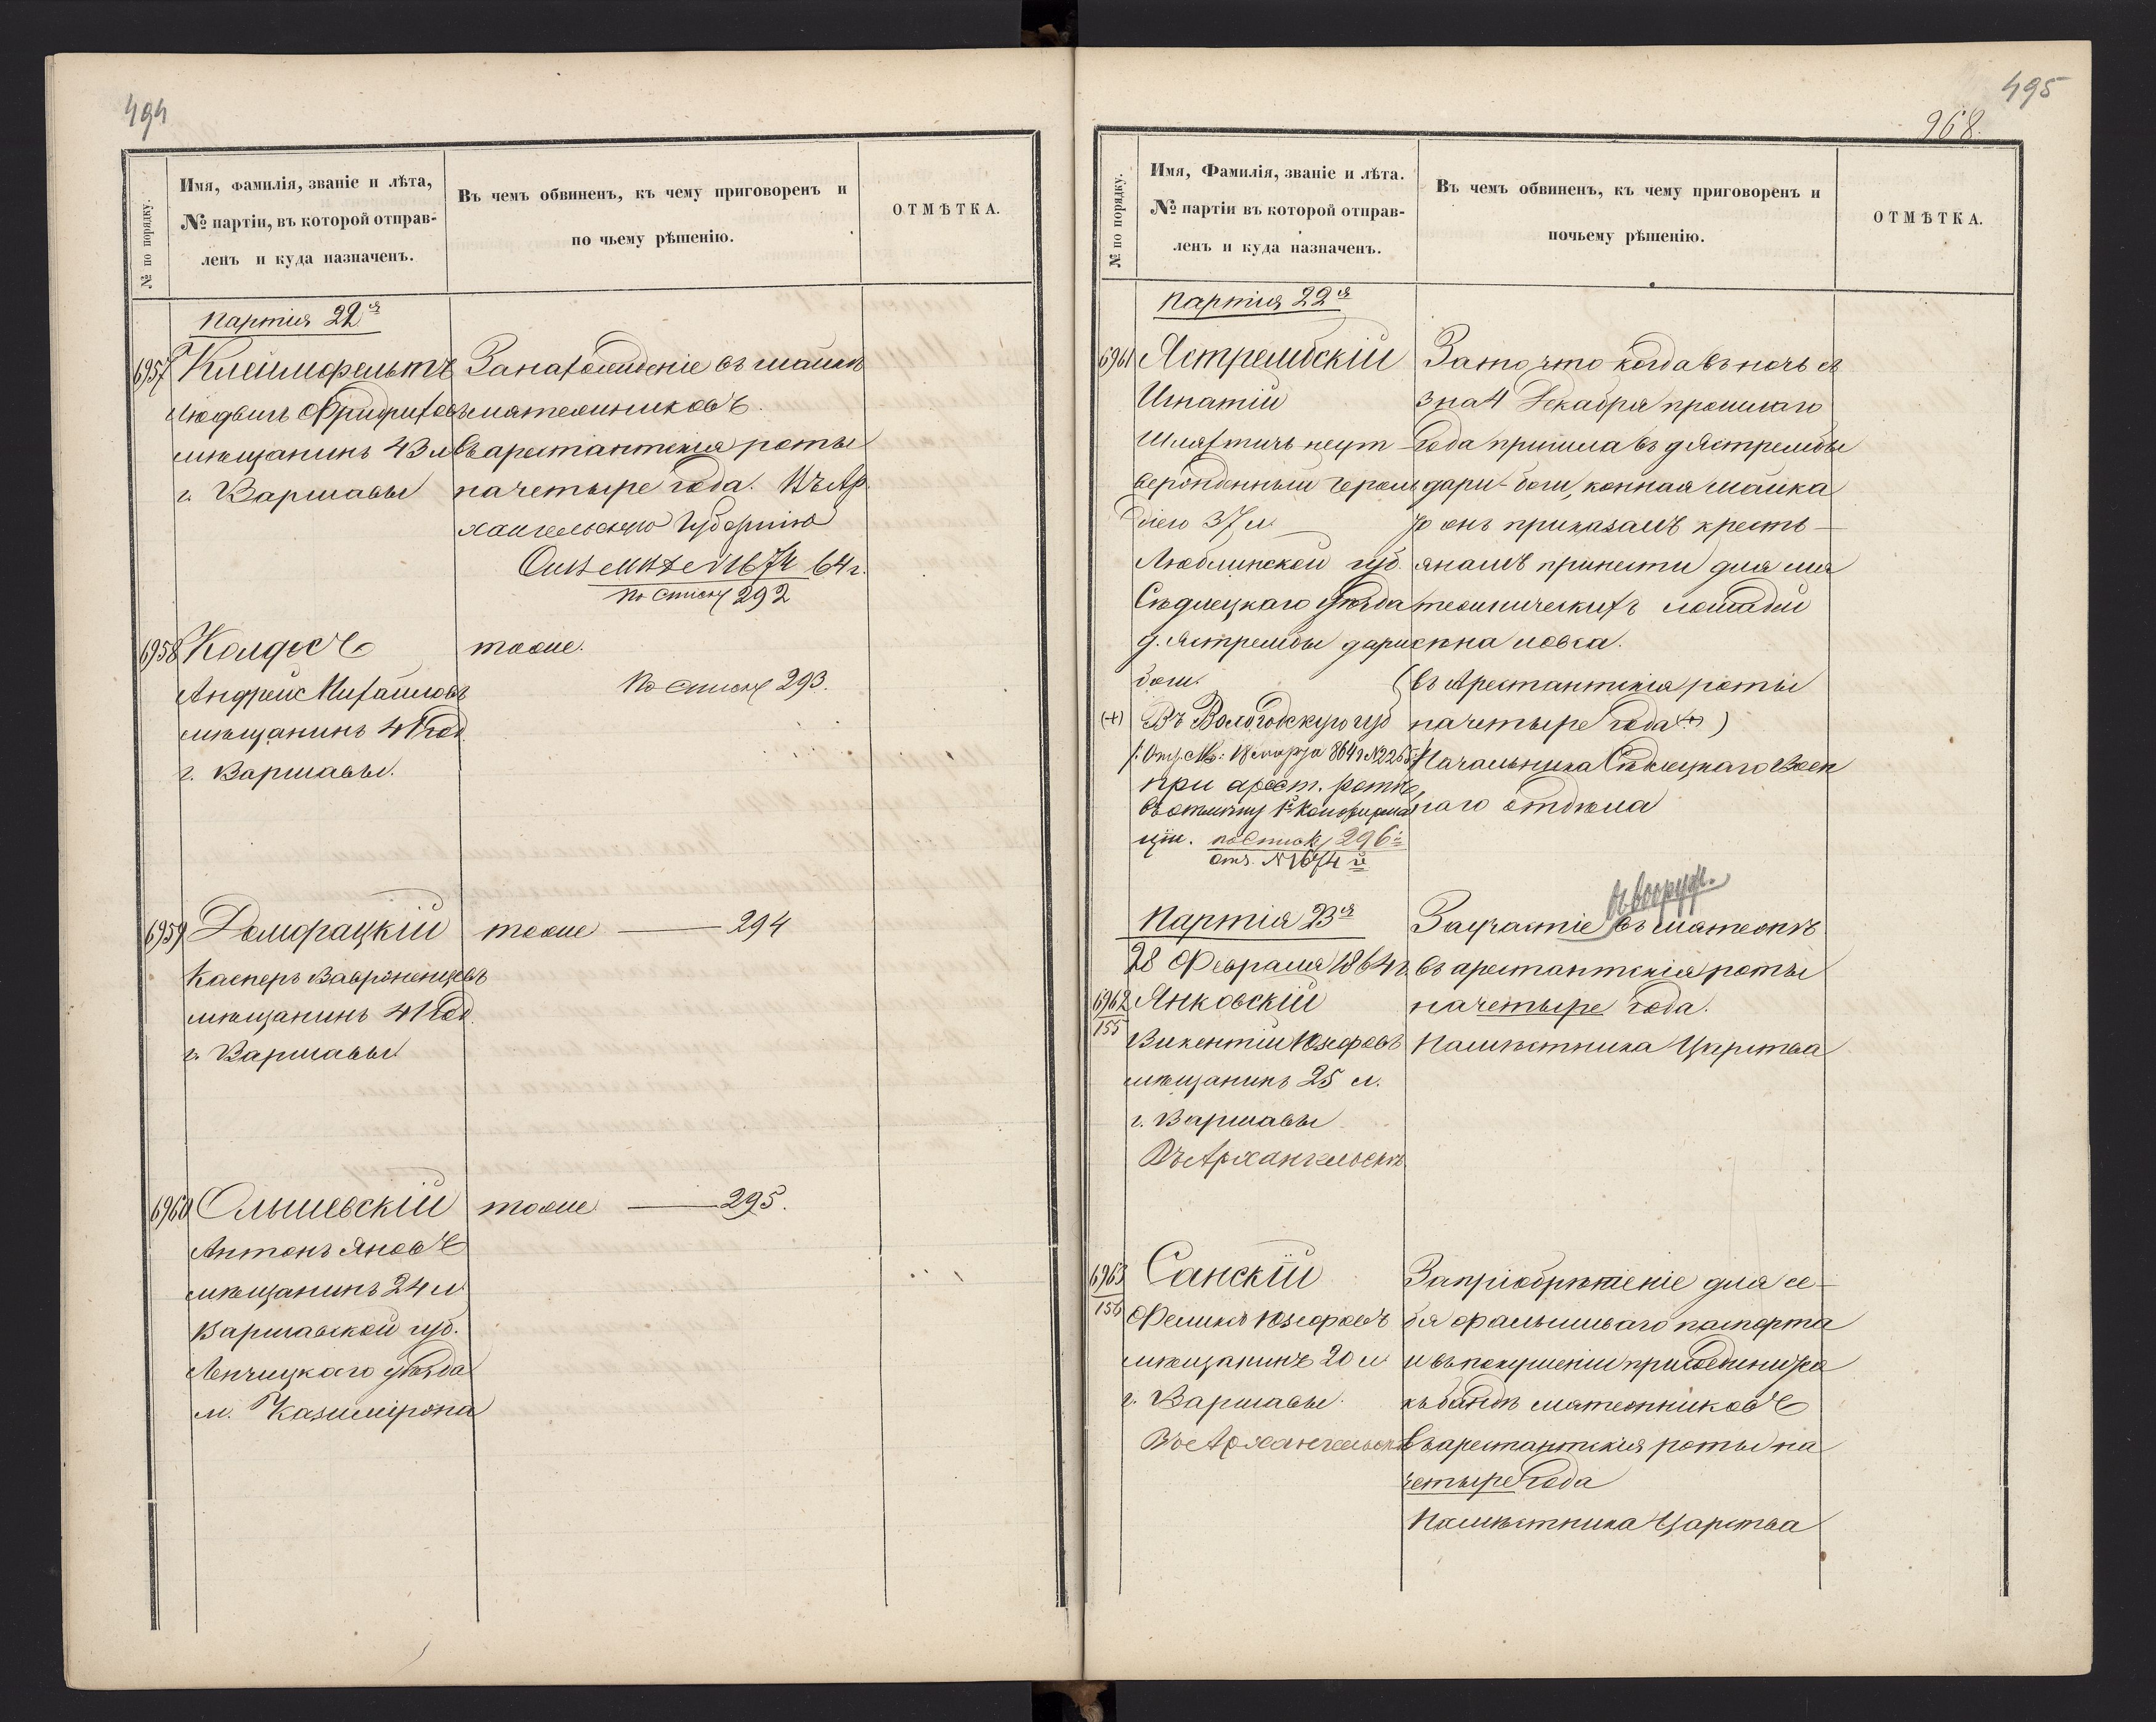 494
№ по порядку.
Имя, фамилія, званіе и лѣта,
№ партіи, въ которой отправ-
ленъ и куда назначенъ.
Въ чемъ обвиненъ, къ чему приговоренъ и
по чьему рѣшенію.
ОТМѢТКА.
Партія 22я
6957 Клеймфельтъ
Людвигъ Фридриховъ
мѣщанинъ 43 л
г. Варшавы
За нахожденіе въ шайкѣ
мятежниковъ.
Въ арестантскія роты
на четыре года. Въ Ар
хангельскую Губернію
1674 64 г.
по списку 292
6958 Колдосъ
Андрей Михайловъ
мѣщанинъ 41 год
г. Варшавы.
тоже.
По списку 293.
6959 Доморацкій
Касперъ Вавроненцевъ
мѣщанинъ 41 год
г. Варшавы
тоже — 294
6960 Ольшевскій
Антонъ Яновъ
мѣщанинъ 24 л
Варшавской губ.
Ленчицкаго уѣзда
м. Казимірона
тоже — 295.
495
968.
№ по порядку.
Имя, Фамилія, званіе и лѣта.
№ партіи въ которой отправ-
ленъ и куда назначенъ.
Въ чемъ обвиненъ, къ чему приговоренъ и
почьему рѣшенію.
ОТМѢТКА.
Партія 22я
6961 Ястрембскій
Игнатій
Шляхтичъ неут-
вержденный герол
діею 37 л
Люблинской губ.
Сѣдлецкаго Уѣзда
д. Ястрембы дари
боги.
(+) Въ Вологодскую губ
18 марта 864 г № 2265
при арест. ротѣ,
въ отмѣну 1й конфирма
ціи. по списку 296й
отз. № 1674й
За то, что когда въ ночь съ
3 на 4 Декабря прошлаго
года пришла въ д Ястрембы
дари-боги, конная шайка
то онъ приказалъ кресть-
янамъ принести для мя
тежническихъ лошадей
сѣна и овса.
(въ Арестантскія роты
на четыре года (+))
Начальника Сѣдлецкаго Воен
наго отдѣла
Партія 23я
28 Февраля 1864 г.
6962
155
Янковскій
Викентій Юзефовъ
мѣщанинъ 25 л.
г. Варшавы
Въ Архангельскъ.
въ вооруж.
За участіе въ мятежѣ
въ арестантскія роты
на четыре года.
Намѣстника Царства
6963
156
Санскій
Феликсъ Юзефовъ
мѣщанинъ 20 л
г. Варшавы.
Въ Архангельскъ
За пріобрѣтеніе для се-
бя фальшиваго паспорта
и въ покушеніи присоединится
къ бандѣ мятежниковъ
въ арестантскія роты на
четыре года
Намѣстника Царства